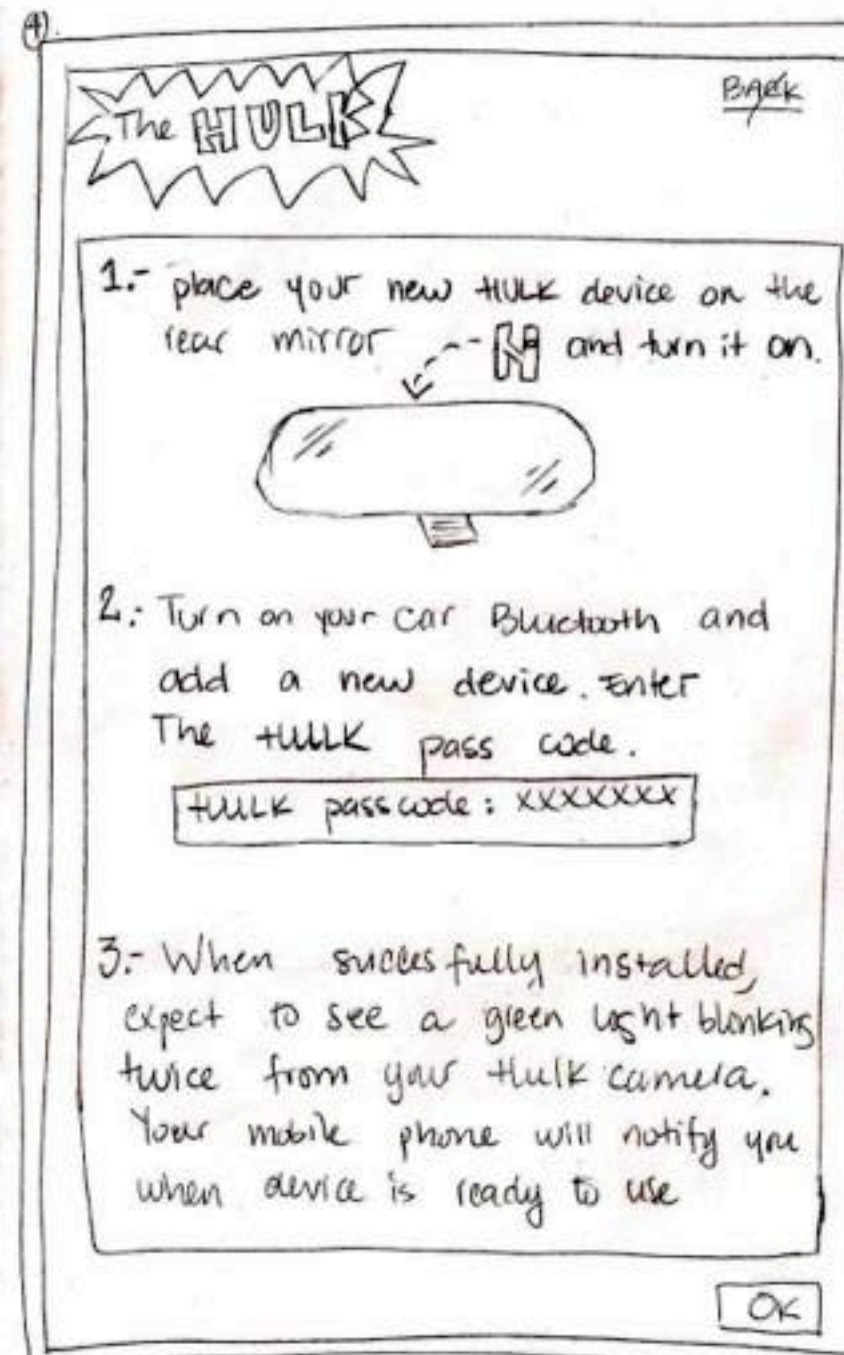 4).
The HULK
BACK
1.- place your new HULK device on the
rear mirror H and turn it on.
2.- Turn on your car Bluetooth and
add a new device. Enter
The HULK pass code.
HULK passcode: XXXXXXX
3.- When succesfully installed,
expect to see a green light blinking
twice from your Hulk camera.
Your mobile phone will notify you
when device is ready to use
OK